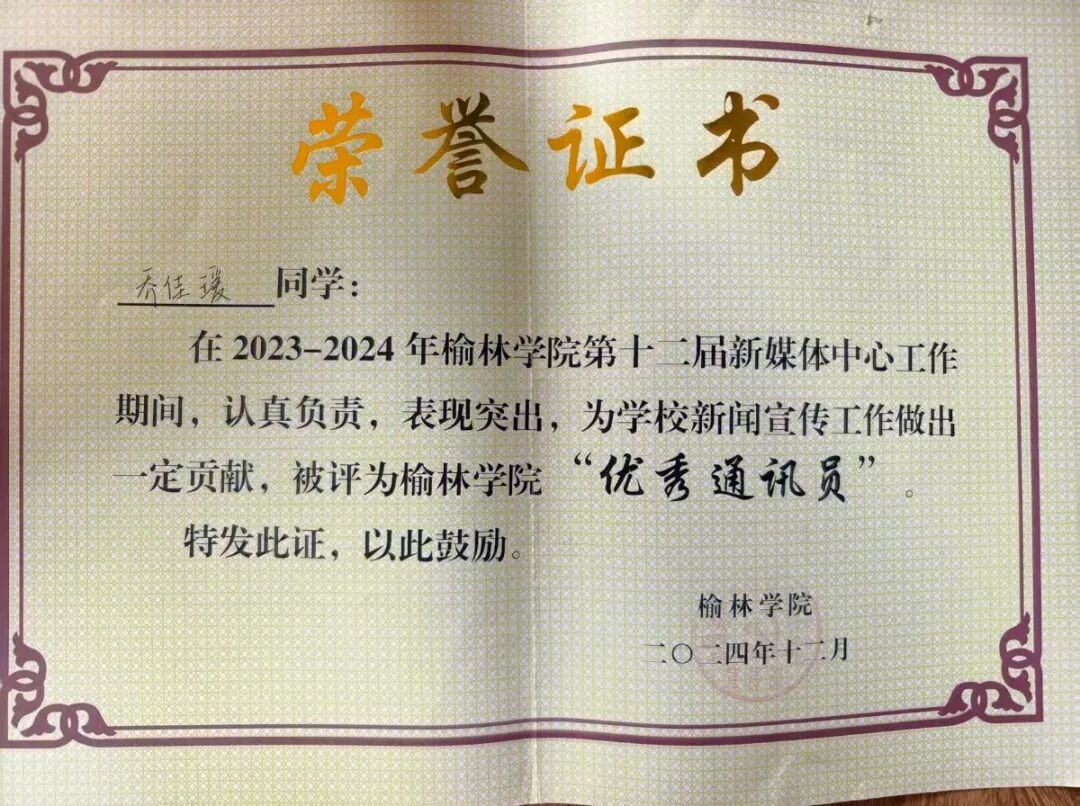 荣誉证书
乔佳瑗 同学：
在2023-2024年榆林学院第十二届新媒体中心工作
期间，认真负责，表现突出，为学校新闻宣传工作做出
一定贡献，被评为榆林学院“优秀通讯员”。
特发此证，以此鼓励。
榆林学院
二〇二四年十二月